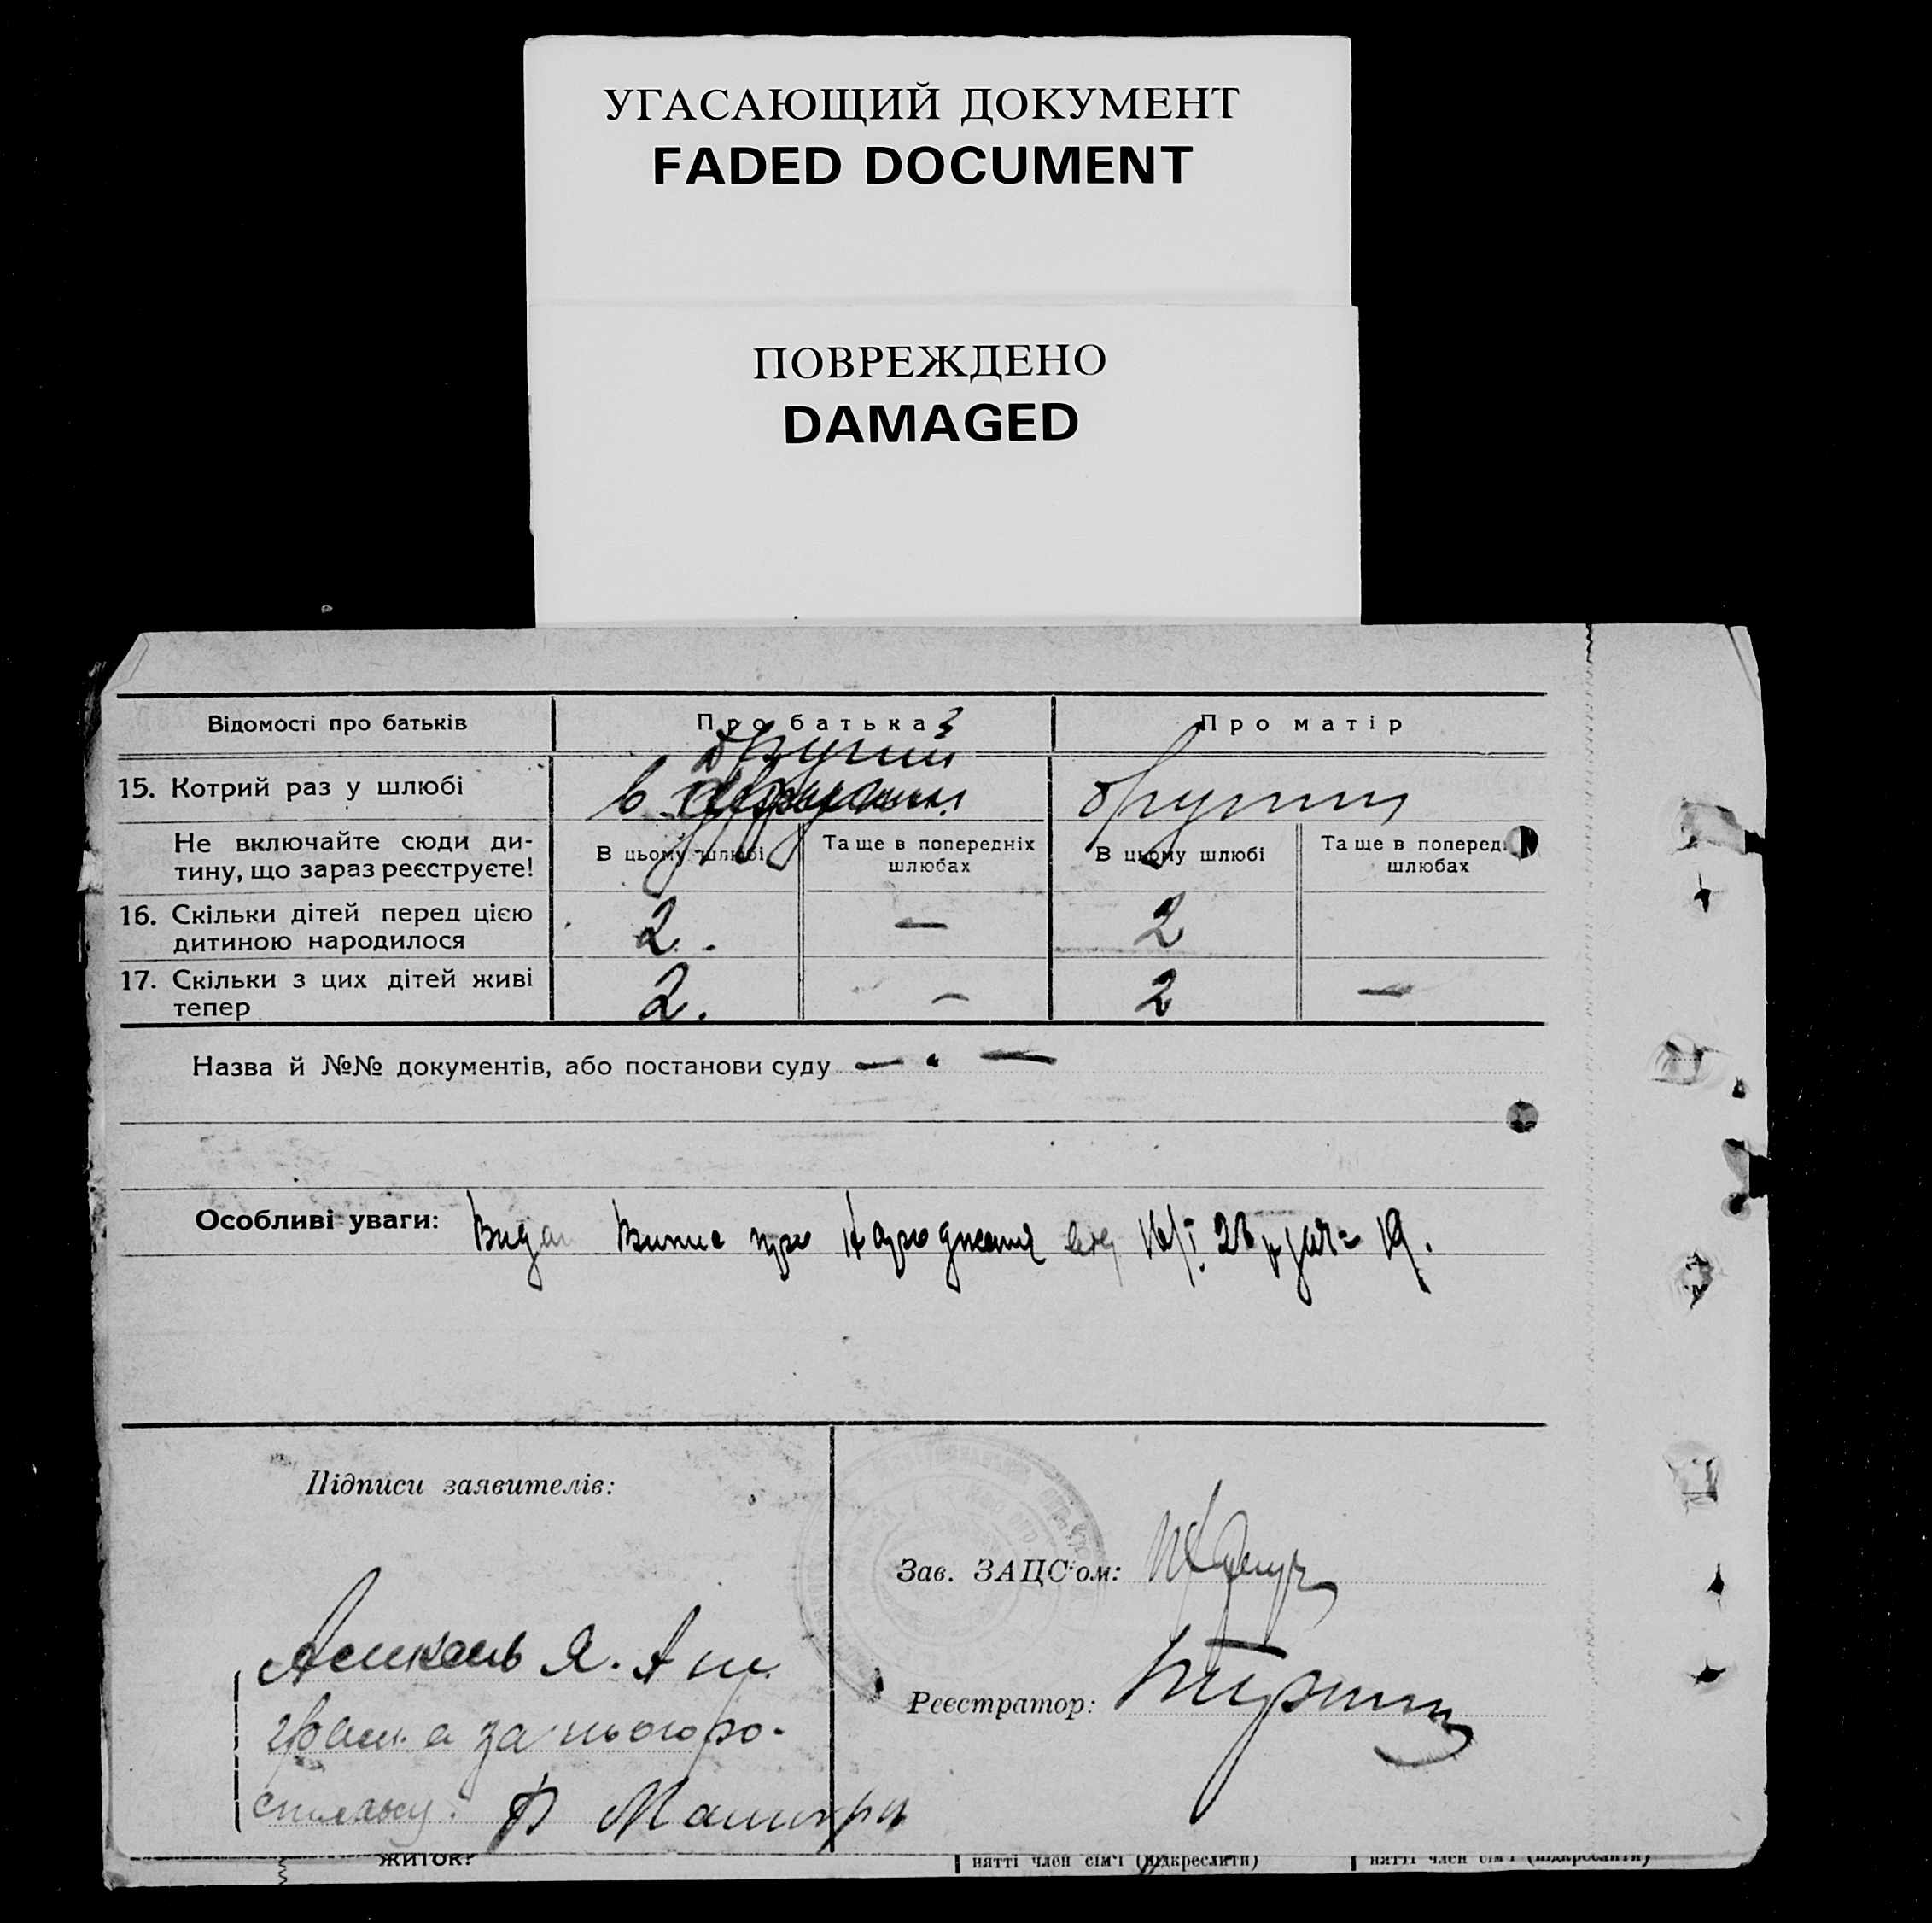 УГАСАЮЩИЙ ДОКУМЕНТ
FADED DOCUMENT
ПОВРЕЖДЕНО
DAMAGED
Відомості про батьків
Про батька
Про матір
15. Котрий раз у шлюбі
другий
в
другий
Не включайте сюди ди-
тину, що зараз реєструєте!
В цьому шлюбі
Та ще в попередніх
шлюбах
В цьому шлюбі
Та ще в поперед
шлюбах
16. Скільки дітей перед цією
дитиною народилося
2.
—
2
17. Скільки з цих дітей живі
тепер
2.
—
2
—
Назва й №№ документів, або постанови суду — " —
Особливі уваги: Видан Випис про Народження від 19.
Підписи заявителів:
Зав. ЗАЦС'ом:
Я.
а за нього ро-
Реєстратор:
житок?
нятті член сім'ї (підкреслити)
нятті член сім'ї (підкреслити)